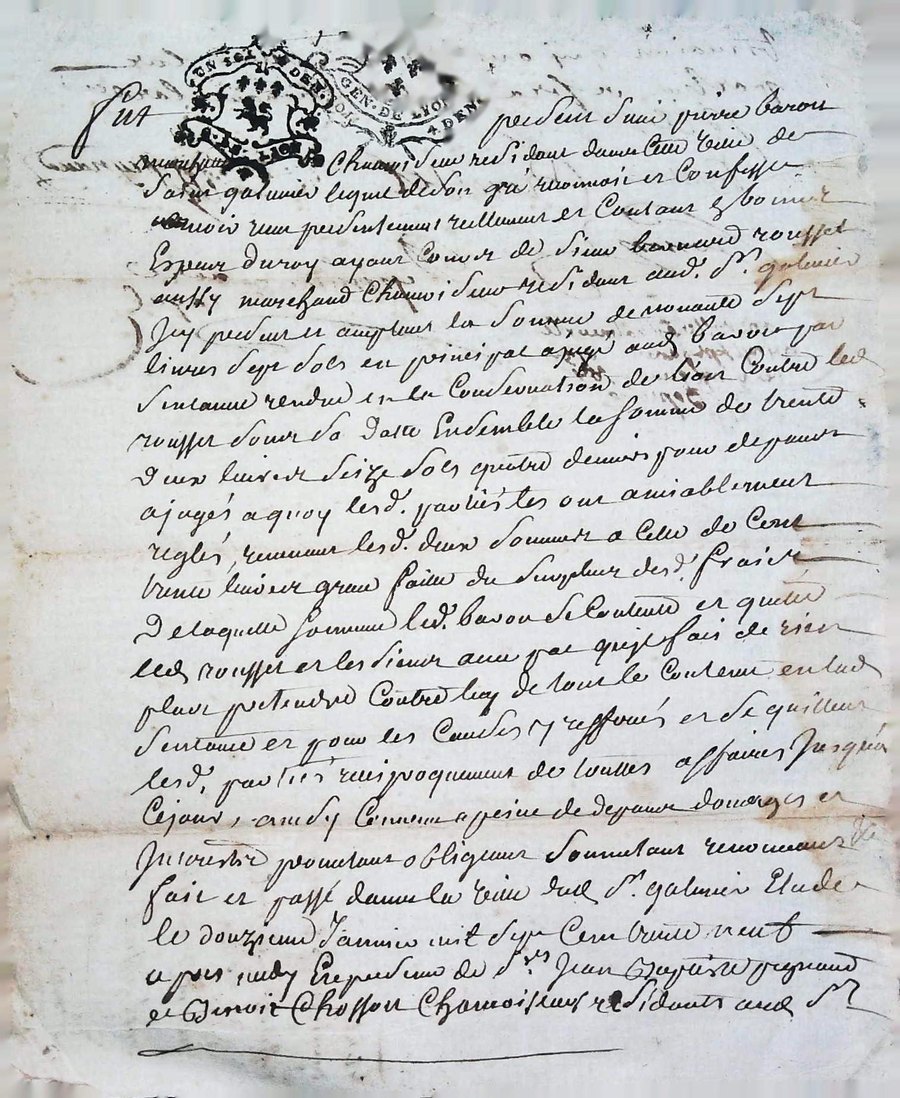 UN SOL 4 DEN.
G. DE LION
GEN. DE LYON
4 DEN.
Fut présent Sieur pierre baron
marchand Chamoiseur residant dans Cette ville de
Saint galmier lequel de son gré reconnoit et Confesse
avoir reçu presentement reellement et Contant Es bonnes
Especes du roy ayant Cours de Sieur bernard rousset
aussy marchand Chamoiseur residant aud. St. galmier
Icy present et acceptant la Somme de nonante Sept
livres Sept Sols en principal ajugé aud baron par
Sentance rendue en la Conservation de lion Contre led
rousset Sous Sa datte Ensemble la Somme de trente
deux livres Seize Sols quatre deniers pour depans
ajugés a quoy lesd. partiés les ont amiablement
reglés, revenant lesd. deux Sommes a Celle de Cent
trente livres grace faitte du Surplus desd. fraix
De laquelle Somme led. baron Se Contente et quitte
led rousset et les Siens avec pact quil fait de rien
plus pretendre Contre luy de tout le Contenu en lad
Sentance et pour les Causes y resforés et Se quittent
lesd. partiés reciproquement de touttes affaires Jusquá
Cejour, ainsy Convenu a peine de depans domages et
Interestz promettant obligeant Soumettant renonceant &c
fait et passé dans la ville dud St. galmier Etude
le douzieme Janvier mil Sept Cent trente neuf
apres midy En presence de Srs Jean Baptiste pagnaud
et Benoit Chosson Chamoiseurs residants aud St